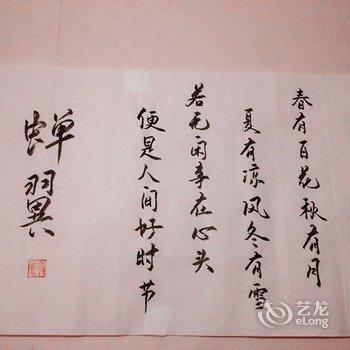 春有百花秋有月
夏有凉风冬有雪
若无闲事在心头
便是人间好时节
蝉羽異
艺龙
eLong